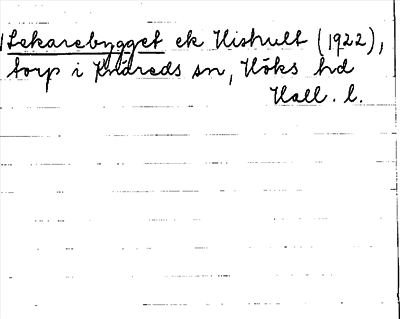 Lekarebygget ek Hishult (1922),
torp i Knäreds sn, Höks hd
Hall. l.